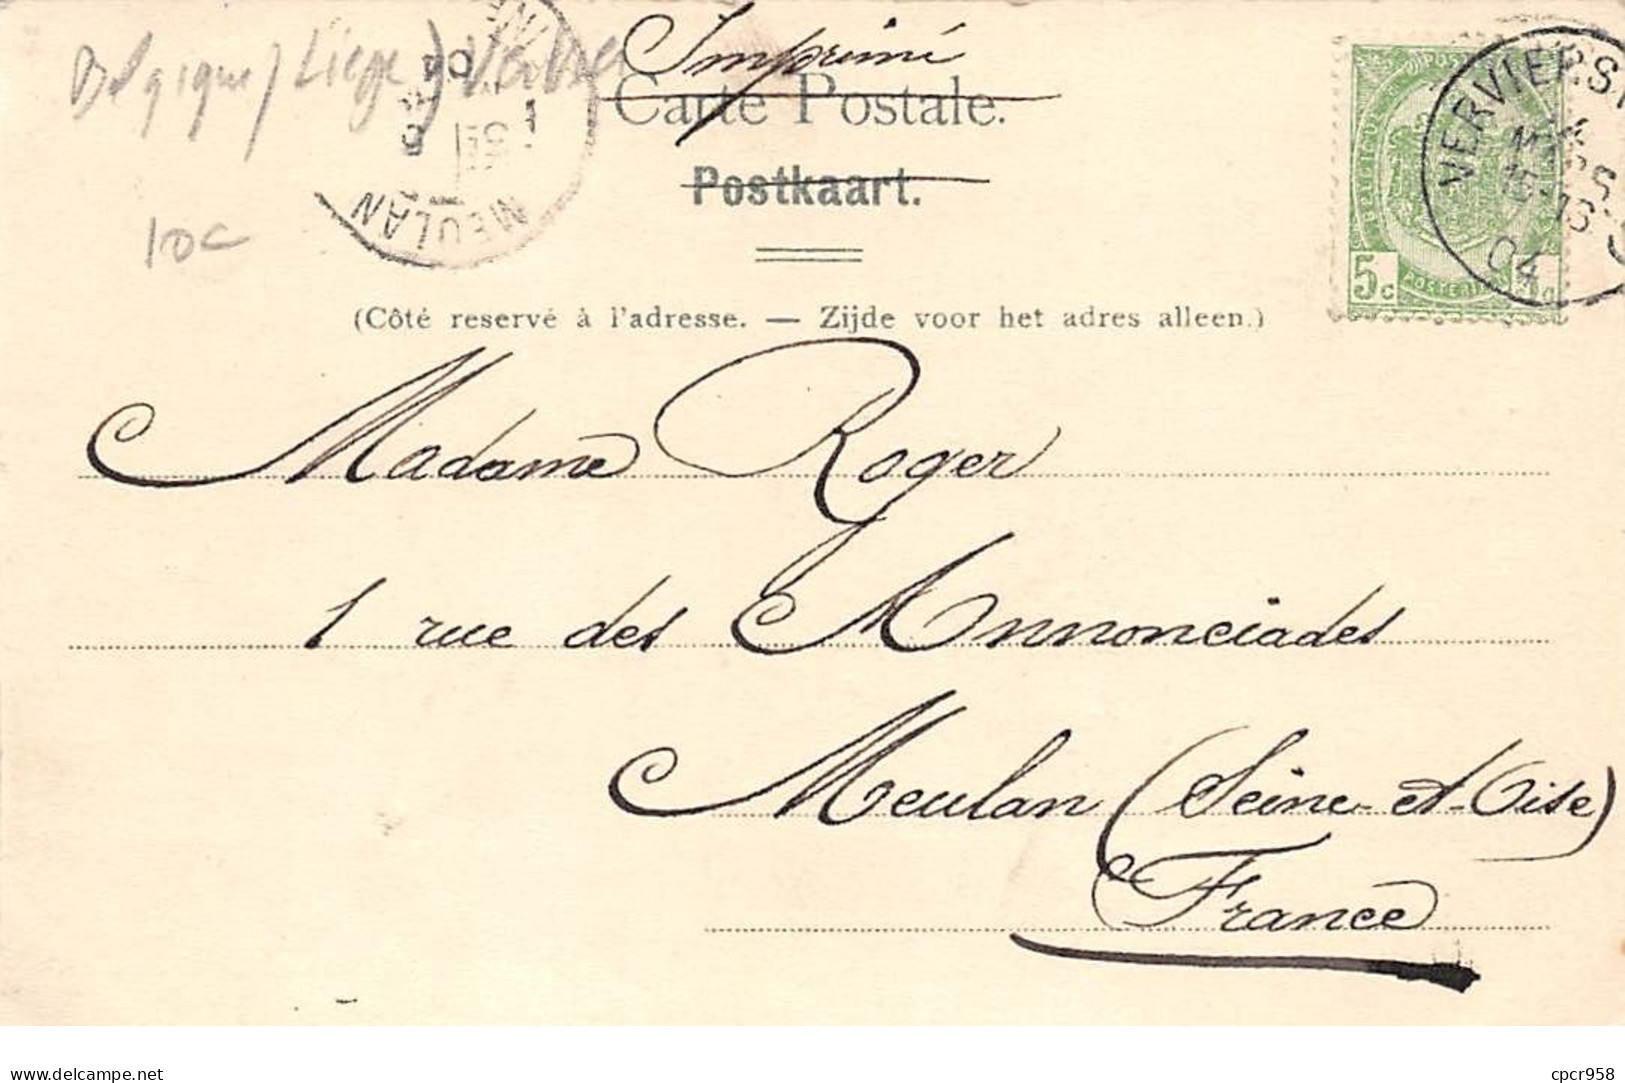 Imprimé
Carte Postale.
Postkaart.
Belgique / Liège /
10c
MEULAN
VERVIERS
MARS
15-16
04
5c
(Côté reservé à l'adresse. — Zijde voor het adres alleen.)
Madame Roger
1 rue des Annonciades
Meulan (Seine-et-Oise)
France
delcampe.net
cpcr958